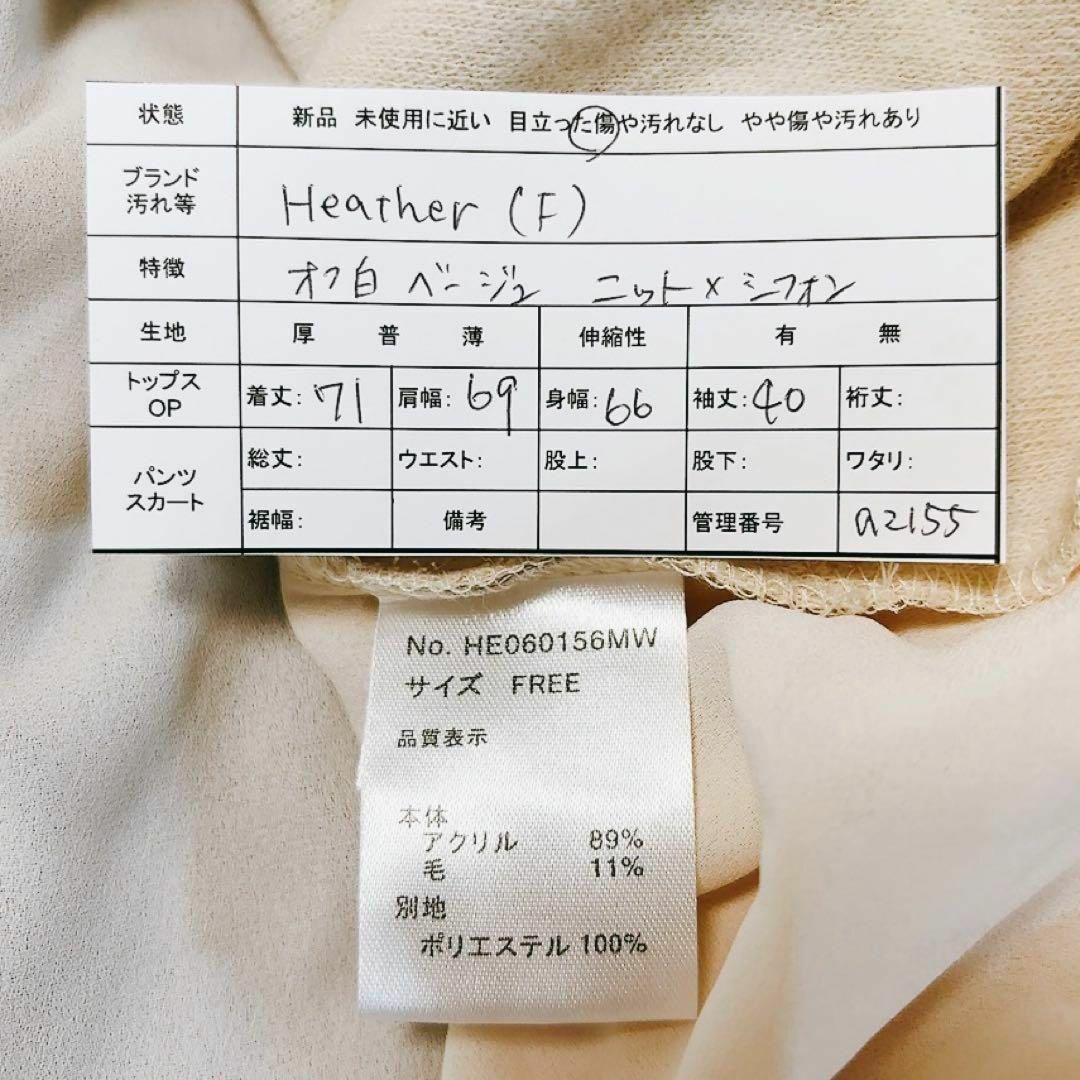 状態 新品 未使用に近い 目立った傷や汚れなし やや傷や汚れあり
ブランド
汚れ等
Heather (F)
特徴 オフ白 ベージュ ニット×シフォン
生地 厚 普 薄 伸縮性 有 無
トップス
OP
着丈: 71 肩幅: 69 身幅: 66 袖丈: 40 裄丈:
パンツ
スカート
総丈: ウエスト: 股上: 股下: ワタリ:
裾幅: 備考 管理番号 a2155
No. HE060156MW
サイズ FREE
品質表示
本体
アクリル 89%
毛 11%
別地
ポリエステル 100%